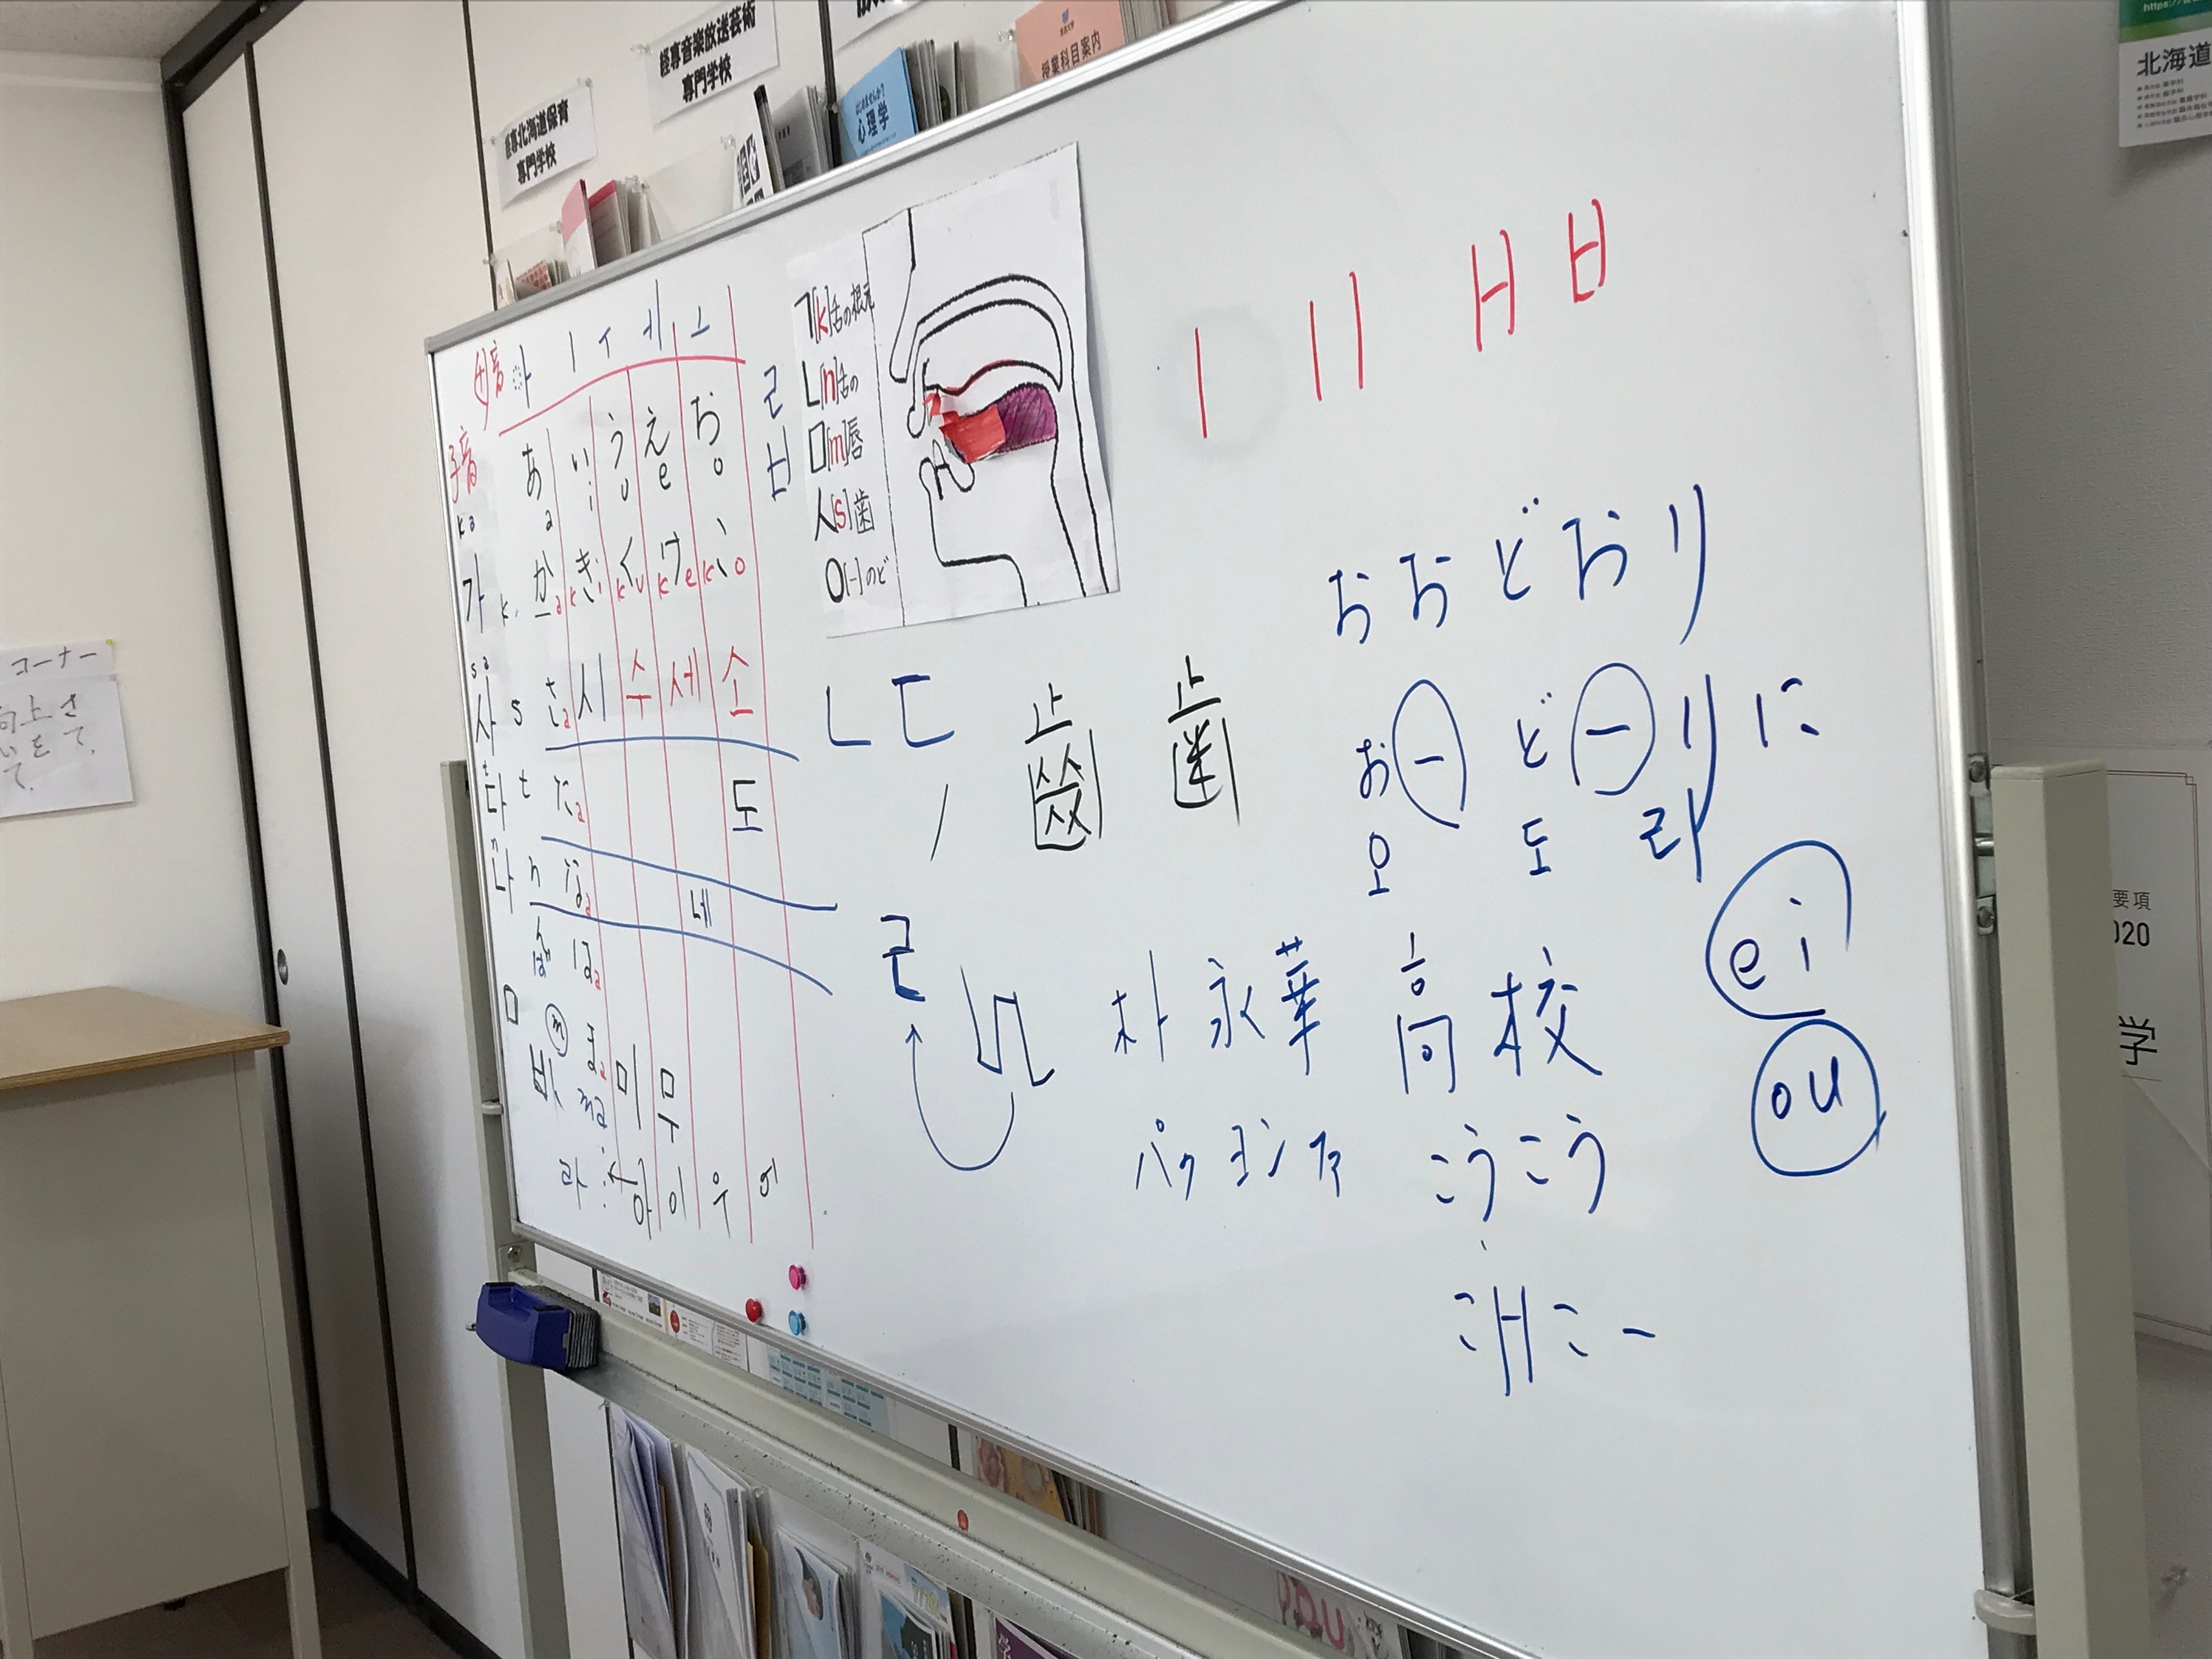 経専北海道保育
専門学校
経専音楽放送芸術
専門学校
心理学
授業科目案内
https://
北海道
コーナー
向上さ
母音 아 ㅣ ㅜ ㅔ ㅗ
子音
あ い う え お
a i u e o
ka
가 k か き く け こ
a ki ku ke ko
sa
사 s さa 시 수 세 소
다 t たa 도
n
나 n なa 네
はa
ㅁ m まa 미 무
바 ma
라 아 이 우 에
ㄹ
ㅂ
ㄱ[k]舌の根元
ㄴ[n]舌の
ㅁ[m]唇
ㅅ[s]歯
ㅇ[-]のど
ㅣ ㅣㅣ ㅂ
ㄴ ㄷ
齒 歯
ㄹ
おおどおり
おーどーりに
오 도 라
ei
ou
朴永華 高校
パクヨンファ こうこう
こーこー
要項
2020
学